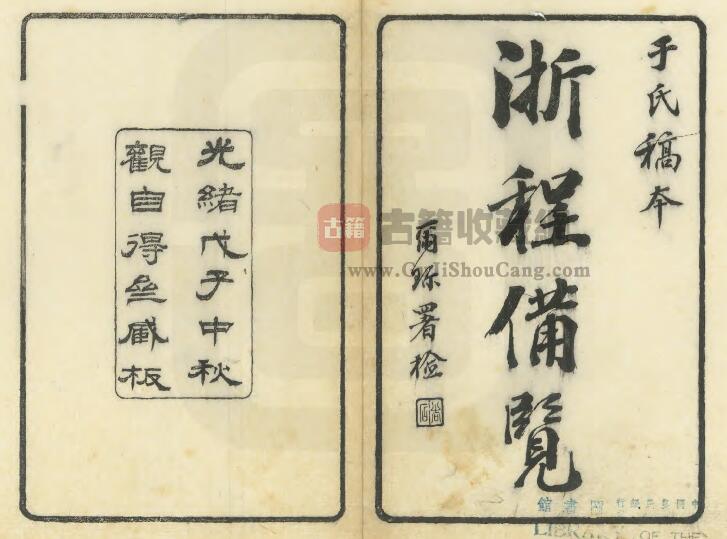 于氏稿本
浙程備覽
爾珎署檢
光緒戊子中秋
觀自得齋藏板
古籍
古籍收藏
www.GuJiShouCang.com
書館
LIBRARY OF THE